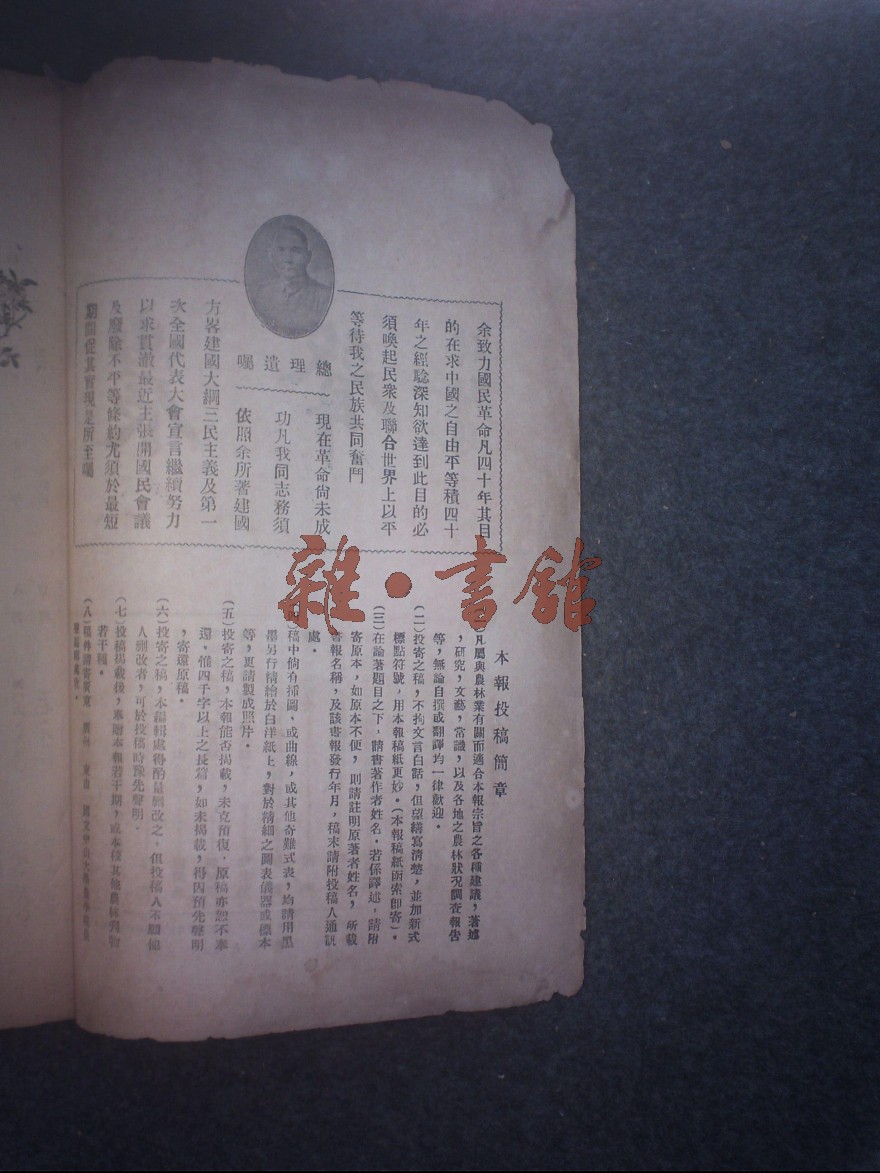 余致力國民革命凡四十年其目
的在求中國之自由平等積四十
年之經驗深知欲達到此目的必
須喚起民衆及聯合世界上以平
等待我之民族共同奮鬥
總理遺囑
現在革命尙未成
功凡我同志務須
依照余所著建國
方畧建國大綱三民主義及第一
次全國代表大會宣言繼續努力
以求貫澈最近主張開國民會議
及廢除不平等條約尤須於最短
期間促其實現是所至囑
本報投稿簡章
凡屬與農林業有關而適合本報宗旨之各種建議，著述
，硏究，文藝，常識，以及各地之農林狀況調查報告
等，無論自撰或翻譯均一律歡迎。
(二)投寄之稿，不拘文言白話，但望繕寫淸楚，並加新式
標點符號，用本報稿紙更妙。(本報稿紙函索卽寄)。
(三)在論著題目之下，請書著作者姓名。若係譯述，請附
寄原本，如原本不便，則請註明原著者姓名，所載
書報名稱，及該書報發行年月，稿末請附投稿人通訊
處。
稿中倘有揷圖，或曲線，或其他奇難式表，均請用黑
墨另行精繪於白洋紙上，對於精細之圖表儀器或標本
等，更請製成照片。
(五)投寄之稿，本報能否揭載，未克預復，原稿亦恕不奉
還，惟四千字以上之長篇，如未揭載，得因預先聲明
，寄還原稿。
(六)投寄之稿，本編輯處得酌量刪改之，但投稿人不願他
人刪改者，可於投稿時豫先聲明。
(七)投稿揭載後，奉贈本報若干期，或本校其他農林刊物
若干種。
(八)稿件請寄廣東
雜·書館